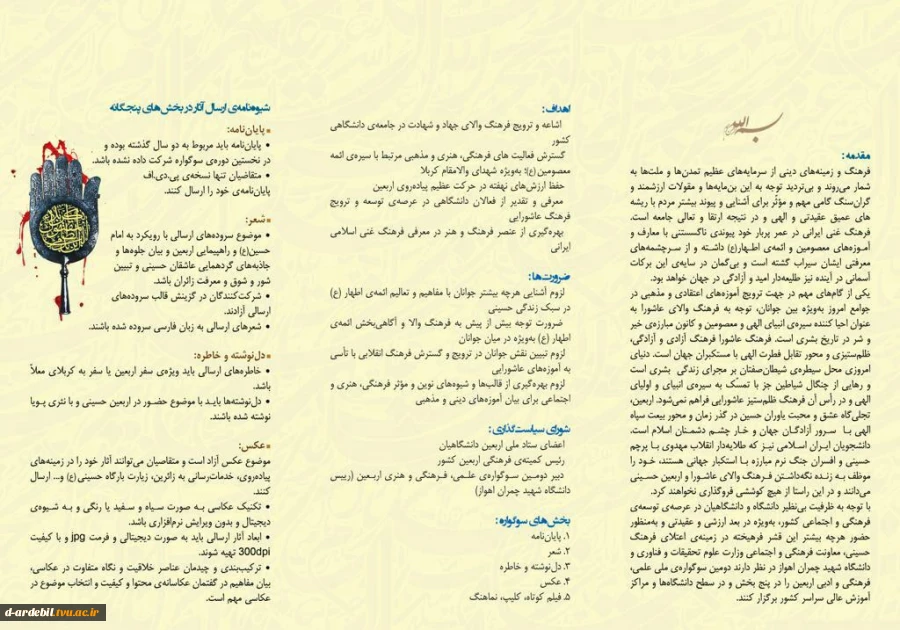 بسم الله
مقدمه:
فرهنگ و زمینه‌های دینی از سرمایه‌های عظیم تمدن‌ها و ملت‌ها به
شمار می‌روند و بی‌تردید توجه به این بن‌مایه‌ها و مقولات ارزشمند و
گران‌سنگ گامی مهم و مؤثر برای آشنایی و پیوند بیشتر مردم با ریشه
های عمیق عقیدتی و الهی و در نتیجه ارتقا و تعالی جامعه است.
فرهنگ غنی ایرانی در عمر پربار خود پیوندی ناگسستنی با معارف و
آموزه‌های معصومین و ائمه‌ی اطهار(ع) داشته و از سرچشمه‌های
معرفتی ایشان سیراب گشته است و بی‌گمان در سایه‌ی این برکات
آسمانی در آینده نیز طلیعه‌دار امید و آزادگی در جهان خواهد بود.
یکی از گام‌های مهم در جهت ترویج آموزه‌های اعتقادی و مذهبی در
جوامع امروز به‌ویژه بین جوانان، توجه به فرهنگ والای عاشورا به
عنوان احیا کننده سیره‌ی انبیای الهی و معصومین و کانون مبارزه‌ی خیر
و شر در تاریخ بشری است. فرهنگ عاشورا فرهنگ آزادی و آزادگی،
ظلم‌ستیزی و محور تقابل فطرت الهی با مستکبران جهان است. دنیای
امروزی محل سیطره‌ی شیطان‌صفتان بر مجرای زندگی بشری است
و رهایی از چنگال شیاطین جز با تمسّک به سیره‌ی انبیای و اولیای
الهی و در رأس آن فرهنگ ظلم‌ستیز عاشورایی فراهم نمی‌شود. اربعین،
تجلی‌گاه عشق و محبت یاوران حسین در گذر زمان و محور بیعت سپاه
الهی با سرور آزادگان جهان و خار چشم دشمنان اسلام است.
دانشجویان ایران اسلامی نیز که طلایه‌دار انقلاب مهدوی با پرچم
حسینی و افسران جنگ نرم مبارزه با استکبار جهانی هستند، خود را
موظف به زنده نگه‌داشتن فرهنگ والای عاشورا و اربعین حسینی
می‌دانند و در این راستا از هیچ کوششی فروگذاری نخواهند کرد.
با توجه به ظرفیت بی‌نظیر دانشگاه و دانشگاهیان در عرصه‌ی توسعه‌ی
فرهنگی و اجتماعی کشور، به‌ویژه در بعد ارزشی و عقیدتی و به‌منظور
حضور هرچه بیشتر این قشر فرهیخته در زمینه‌ی اعتلای فرهنگ
حسینی، معاونت فرهنگی و اجتماعی وزارت علوم تحقیقات و فناوری و
دانشگاه شهید چمران اهواز در نظر دارند دومین سوگواره‌ی ملی علمی،
فرهنگی و ادبی اربعین را در پنج بخش و در سطح دانشگاه‌ها و مراکز
آموزش عالی سراسر کشور برگزار کنند.
اهداف:
اشاعه و ترویج فرهنگ والای جهاد و شهادت در جامعه‌ی دانشگاهی
کشور
گسترش فعالیت های فرهنگی، هنری و مذهبی مرتبط با سیره‌ی ائمه
معصومین (ع)؛ به‌ویژه شهدای والامقام کربلا
حفظ ارزش‌های نهفته در حرکت عظیم پیاده‌روی اربعین
معرفی و تقدیر از فعالان دانشگاهی در عرصه‌ی توسعه و ترویج
فرهنگ عاشورایی
بهره‌گیری از عنصر فرهنگ و هنر در معرفی فرهنگ غنی اسلامی
ایرانی
ضرورت‌ها:
لزوم آشنایی هرچه بیشتر جوانان با مفاهیم و تعالیم ائمه‌ی اطهار (ع)
در سبک زندگی حسینی
ضرورت توجه بیش از پیش به فرهنگ والا و آگاهی‌بخش ائمه‌ی
اطهار (ع) به‌ویژه در میان جوانان
لزوم تبیین نقش جوانان در ترویج و گسترش فرهنگ انقلابی با تأسی
به آموزه‌های عاشورایی
لزوم بهره‌گیری از قالب‌ها و شیوه‌های نوین و مؤثر فرهنگی، هنری و
اجتماعی برای بیان آموزه‌های دینی و مذهبی
شورای سیاست‌گذاری:
اعضای ستاد ملی اربعین دانشگاهیان
رئیس کمیته‌ی فرهنگی اربعین کشور
دبیر دومین سوگواره‌ی علمی، فرهنگی و هنری اربعین (رییس
دانشگاه شهید چمران اهواز)
بخش‌های سوگواره:
۱. پایان‌نامه
۲. شعر
۳. دل‌نوشته و خاطره
۴. عکس
۵. فیلم کوتاه، کلیپ، نماهنگ
شیوه‌نامه‌ی ارسال آثار در بخش‌های پنجگانه
پایان‌نامه:
• پایان‌نامه باید مربوط به دو سال گذشته بوده و
در نخستین دوره‌ی سوگواره شرکت داده نشده باشد.
• متقاضیان تنها نسخه‌ی پی.دی.اف
پایان‌نامه‌ی خود را ارسال کنند.
شعر:
• موضوع سروده‌های ارسالی با رویکرد به امام
حسین(ع) و راهپیمایی اربعین و بیان جلوه‌ها و
جاذبه‌های گردهمایی عاشقان حسینی و تبیین
شور و شوق و معرفت زائران باشد.
• شرکت‌کنندگان در گزینش قالب سروده‌های
ارسالی آزادند.
• شعرهای ارسالی به زبان فارسی سروده شده باشند.
دل‌نوشته و خاطره:
• خاطره‌های ارسالی باید ویژه‌ی سفر اربعین یا سفر به کربلای معلاّ
باشد.
• دل‌نوشته‌ها باید با موضوع حضور در اربعین حسینی و با نثری پویا
نوشته شده باشند.
عکس:
موضوع عکس آزاد است و متقاضیان می‌توانند آثار خود را در زمینه‌های
پیاده‌روی، خدمات‌رسانی به زائرین، زیارت بارگاه حسینی (ع) و... ارسال
کنند.
• تکنیک عکاسی به صورت سیاه و سفید یا رنگی و به شیوه‌ی
دیجیتال و بدون ویرایش نرم‌افزاری باشد.
• ابعاد آثار ارسالی باید به صورت دیجیتالی و فرمت jpg و با کیفیت
300dpi تهیه شوند.
• ترکیب‌بندی و چیدمان عناصر خلاقیت و نگاه متفاوت در عکاسی،
بیان مفاهیم در گفتمان عکاسانه‌ی محتوا و کیفیت و انتخاب موضوع در
عکاسی مهم است.
d-ardebil.tvu.ac.ir